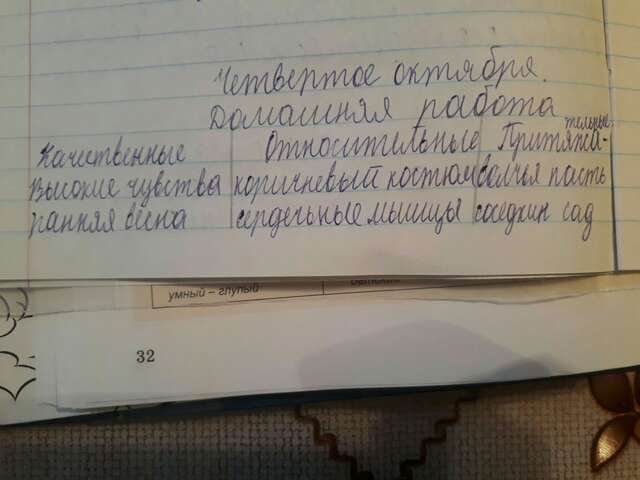 Четвертое октября.
Домашняя работа
Качественные Относительные Притяжа-
тельные
Высокие чувства коричневый костюм волчья пасть
ранняя весна сердечные мышцы соседкин сад
умный – глупый
32